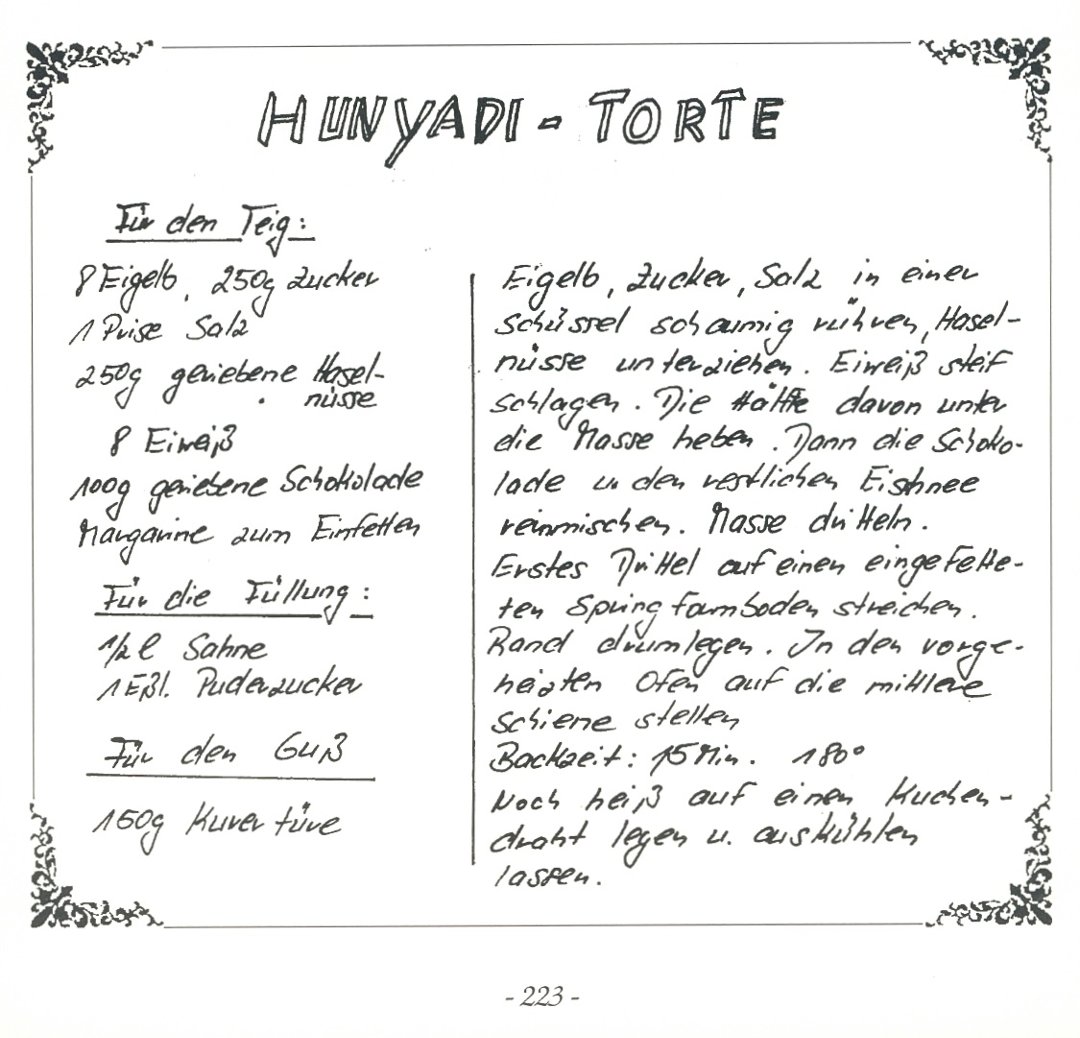 HUNYADI - TORTE
Für den Teig:
8 Eigelb, 250g Zucker
1 Prise Salz
250g geriebene Hasel-
nüsse
8 Eiweiß
100g geriebene Schokolade
Margarine zum Einfetten
Für die Füllung:
1/2 l Sahne
1 Eßl. Puderzucker
Für den Guß
150g Kuvertüre
Eigelb, Zucker, Salz in einer
Schüssel schaumig rühren, Hasel-
nüsse unterziehen. Eiweiß steif
schlagen. Die Hälfte davon unter
die Masse heben. Dann die Schoko-
lade u den restlichen Eishnee
reinmischen. Masse dritteln.
Erstes Drittel auf einen eingefette-
ten Springformboden streichen.
Rand drumlegen. In den vorge-
heizten Ofen auf die mittlere
Schiene stellen
Backzeit: 15 Min. 180°
Noch heiß auf einen Kuchen-
draht legen u. auskühlen
lassen.
- 223 -